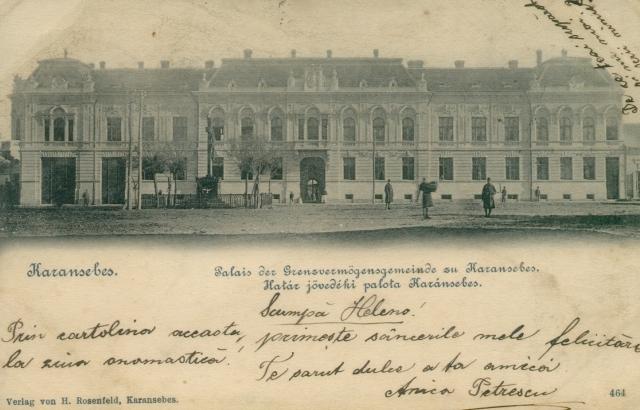 Karansebes.
Palais der Grenzvermögensgemeinde zu Karansebes.
Határ jövedéki palota Karánsebes.
Scumpă Heleno!
Prin cartolina aceasta, primește sâncerile mele felicitări
la ziua onomastică!
Te sarut dulce a ta amică
Anica Petrescu
Verlag von H. Rosenfeld, Karansebes.
464